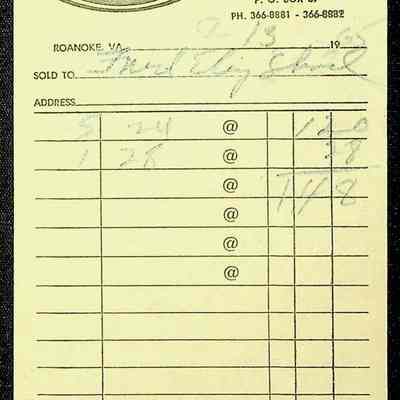 P. O. BOX 87
PH. 366-8881 - 366-8882
ROANOKE, VA. 2 13 19 65
SOLD TO
ADDRESS
5 24 @ 120
1 28 @ 28
@ 148
@
@
@